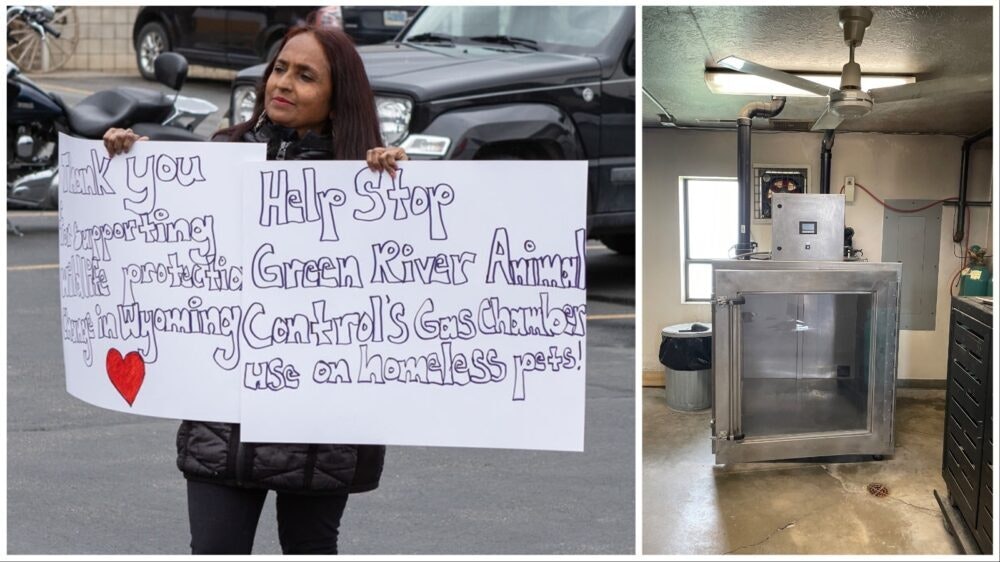 Thank you
for supporting
wildlife protection
things in Wyoming
Help Stop
Green River Animal
Control's Gas Chamber
use on homeless pets!